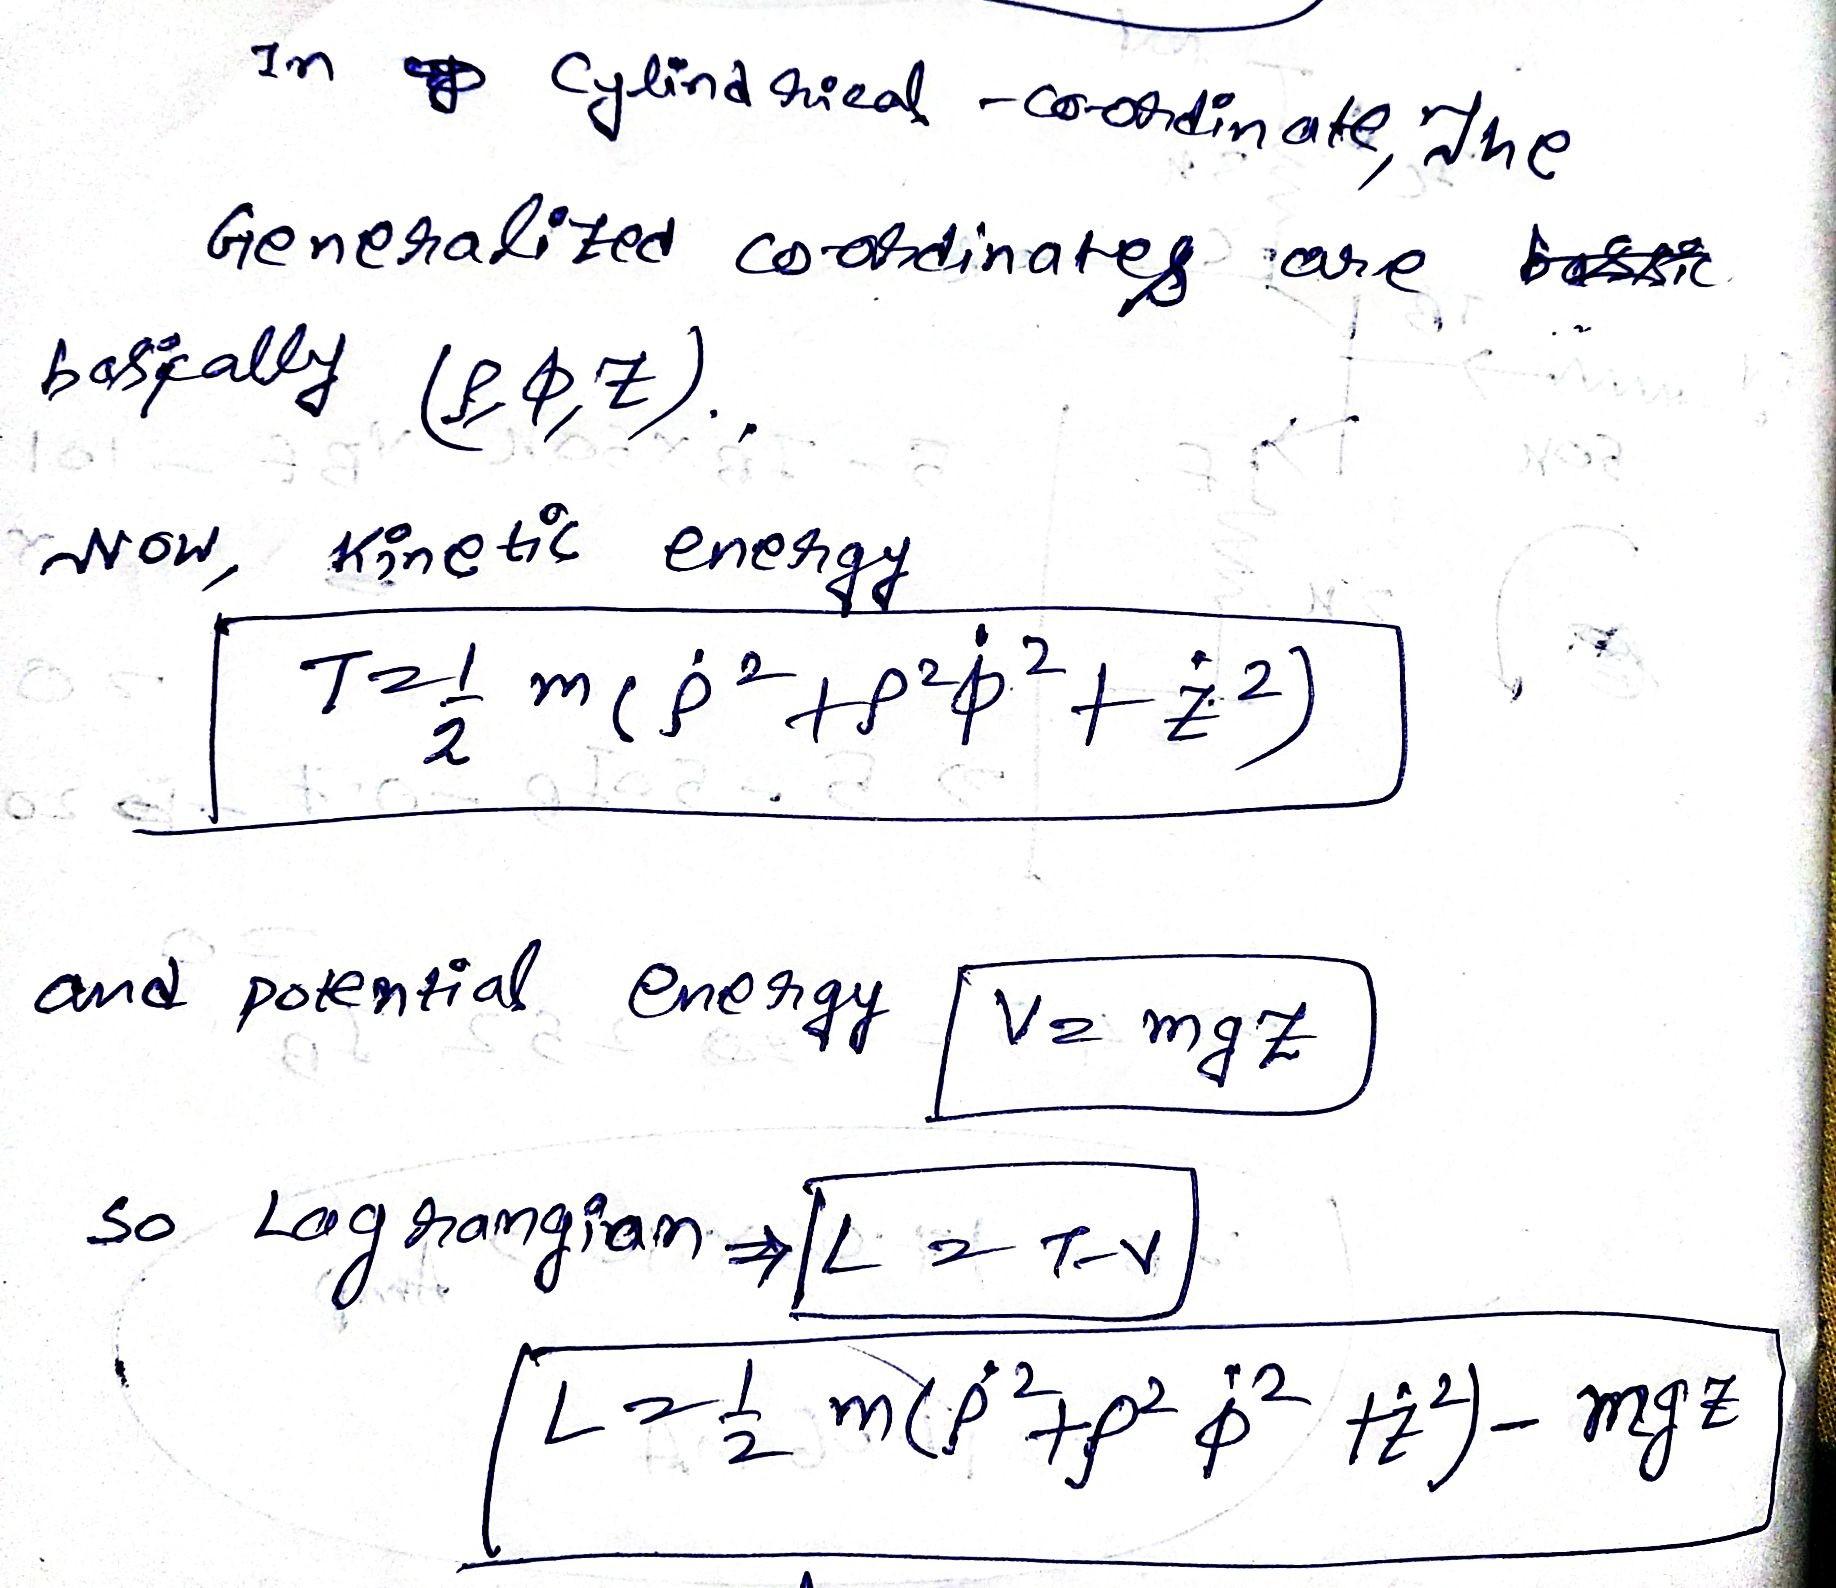 In Cylindrical -co-ordinate, The
Generalized co-ordinates are
basically (ρ, ϕ, z).
Now, Kinetic energy
T = 1/2 m(ρ̇² + ρ²ϕ̇² + ż²)
and potential energy V = mgz
so Lagrangian ⇒ L = T-V
L = 1/2 m(ρ̇² + ρ² ϕ̇² + ż²) - mgz